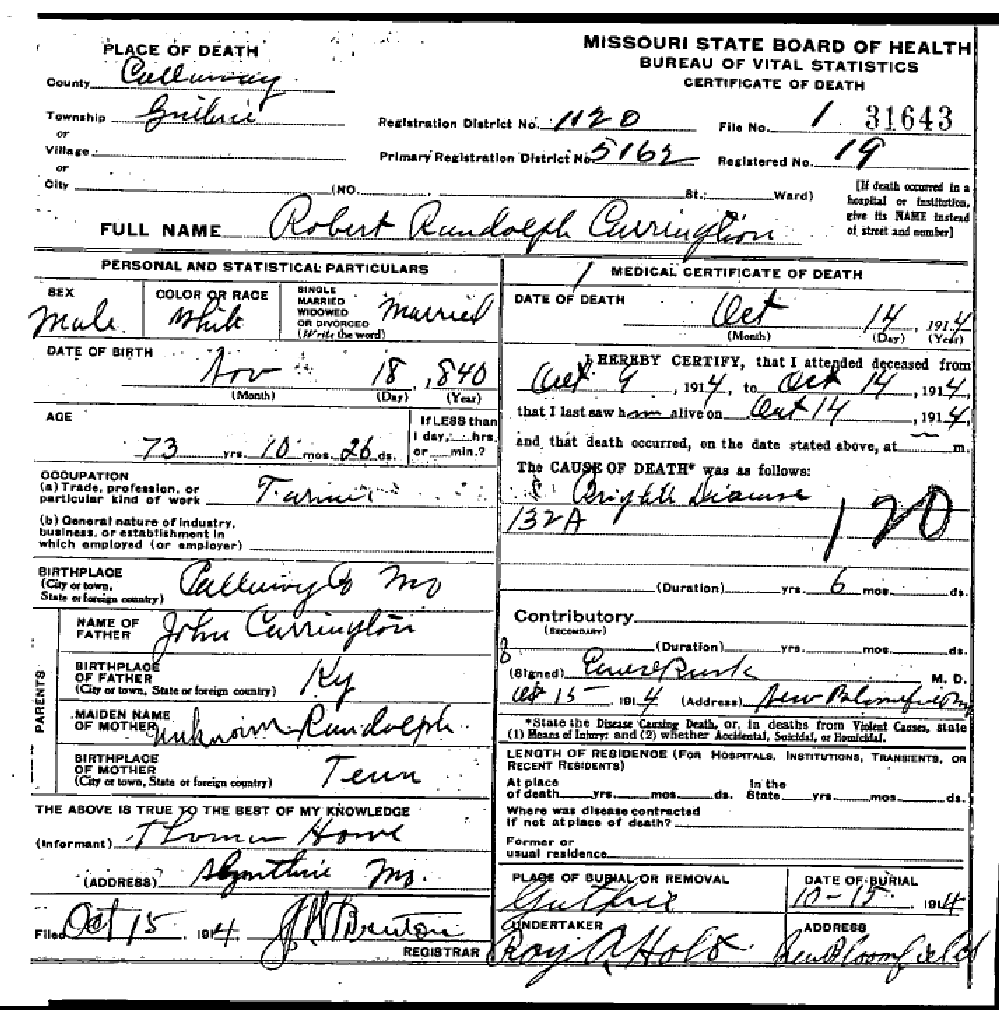 MISSOURI STATE BOARD OF HEALTH
BUREAU OF VITAL STATISTICS
CERTIFICATE OF DEATH
PLACE OF DEATH
County Callaway
Township Guthrie
or
Village
or
City (NO. St.; Ward)
Registration District No. 1120 File No. 1 31643
Primary Registration District No. 5162 Registered No. 19
[If death occurred in a
hospital or institution,
give its NAME instead
of street and number]
FULL NAME Robert Randolph Carrington
PERSONAL AND STATISTICAL PARTICULARS
SEX
Male
COLOR OR RACE
White
SINGLE
MARRIED
WIDOWED
OR DIVORCED
(Write the word)
Married
DATE OF BIRTH
Nov 18, 1840
(Month) (Day) (Year)
AGE
73 yrs. 10 mos. 26 ds.
If LESS than
1 day, hrs.
or min.?
OCCUPATION
(a) Trade, profession, or
particular kind of work Farmer
(b) General nature of industry,
business, or establishment in
which employed (or employer)
BIRTHPLACE
(City or town,
State or foreign country) Callaway Co Mo
PARENTS
NAME OF
FATHER John Carrington
BIRTHPLACE
OF FATHER
(City or town, State or foreign country) Ky
MAIDEN NAME
OF MOTHER unknown Randolph
BIRTHPLACE
OF MOTHER
(City or town, State or foreign country) Tenn
THE ABOVE IS TRUE TO THE BEST OF MY KNOWLEDGE
(Informant) Thomas Howe
(ADDRESS) Guthrie Mo.
Filed Oct 15, 1914
REGISTRAR
MEDICAL CERTIFICATE OF DEATH
DATE OF DEATH
Oct 14, 1914
(Month) (Day) (Year)
I HEREBY CERTIFY, that I attended deceased from
Oct 9, 1914, to Oct 14, 1914,
that I last saw him alive on Oct 14, 1914,
and that death occurred, on the date stated above, at m.
The CAUSE OF DEATH* was as follows:
Brights Disease
132A 120
(Duration) yrs. 6 mos. ds.
Contributory
(SECONDARY)
(Duration) yrs. mos. ds.
(Signed) M. D.
Oct 15 1914 (Address) New Bloomfield Mo
*State the Disease Causing Death, or, in deaths from Violent Causes, state
(1) Means of Injury; and (2) whether Accidental, Suicidal, or Homicidal.
LENGTH OF RESIDENCE (FOR HOSPITALS, INSTITUTIONS, TRANSIENTS, OR
RECENT RESIDENTS)
At place
of death yrs. mos. ds.
In the
State yrs. mos. ds.
Where was disease contracted
if not at place of death?
Former or
usual residence
PLACE OF BURIAL OR REMOVAL
Guthrie
DATE OF BURIAL
10-15- 1914
UNDERTAKER
Roy A Holt
ADDRESS
New Bloomfield